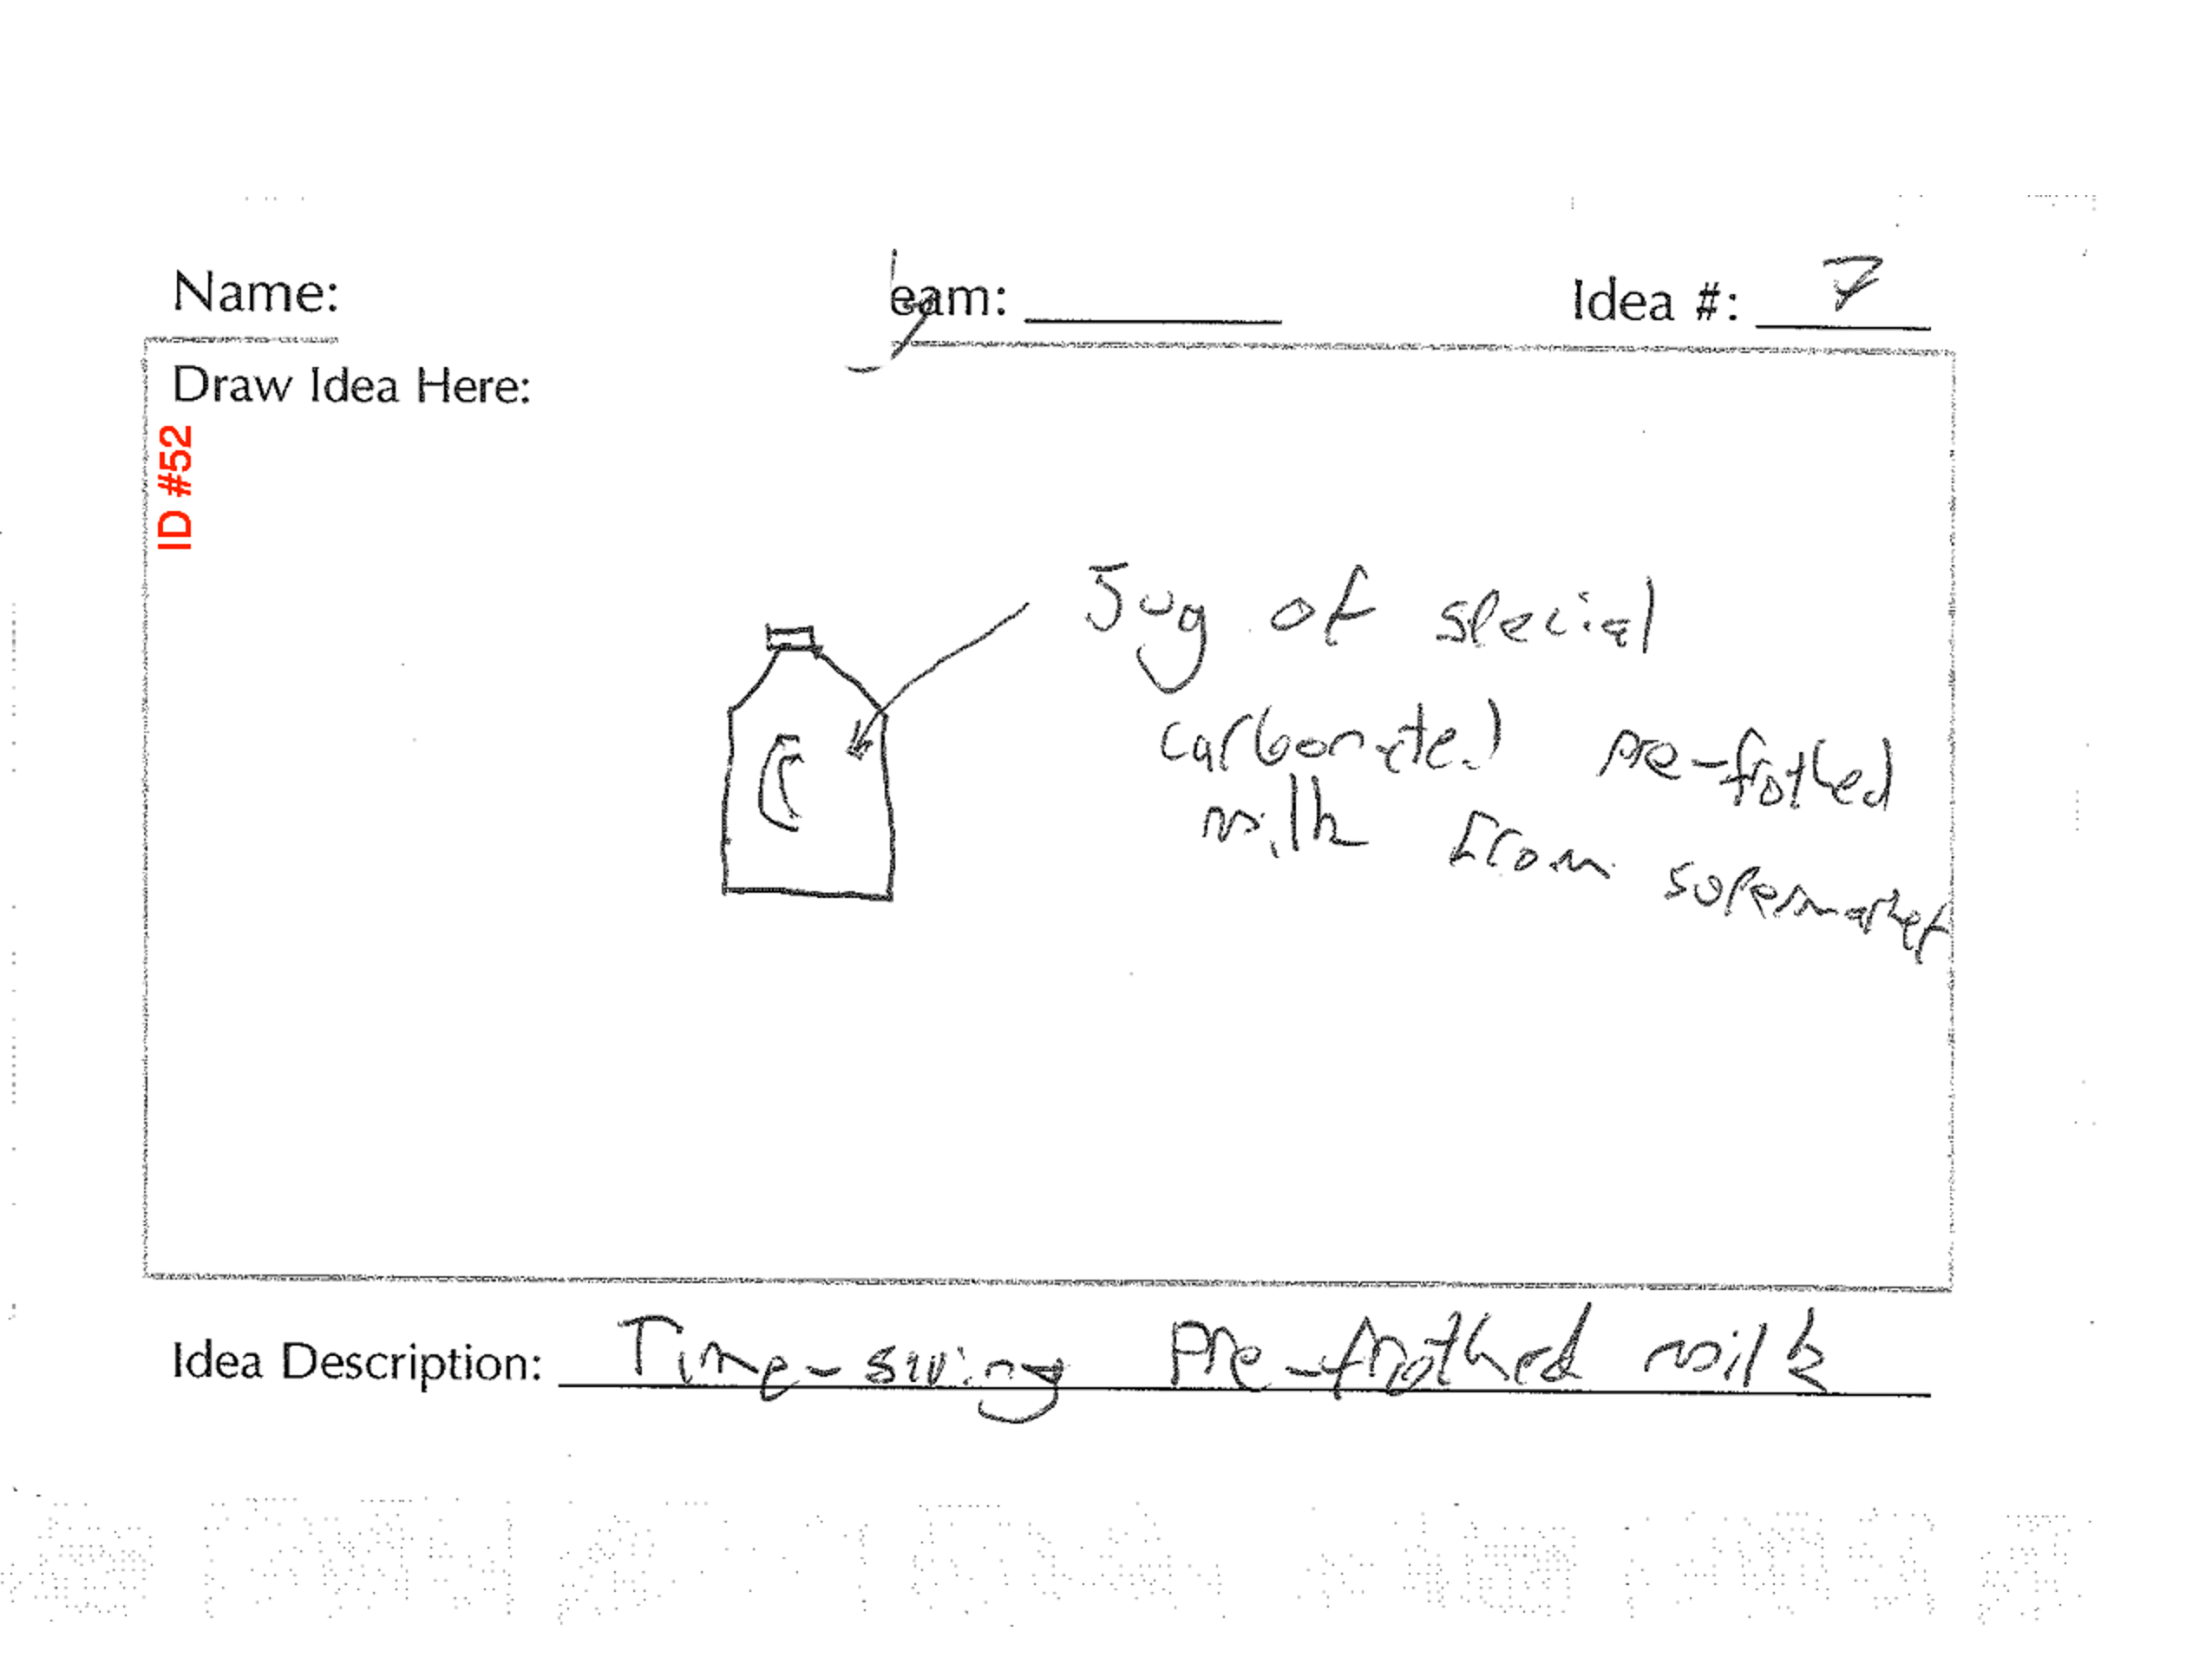 Name:
eam:
Idea #: 7
Draw Idea Here:
ID #52
Jug of special
carbonated pre-frothed
milk from supermarket
Idea Description: Time-saving Pre-frothed milk